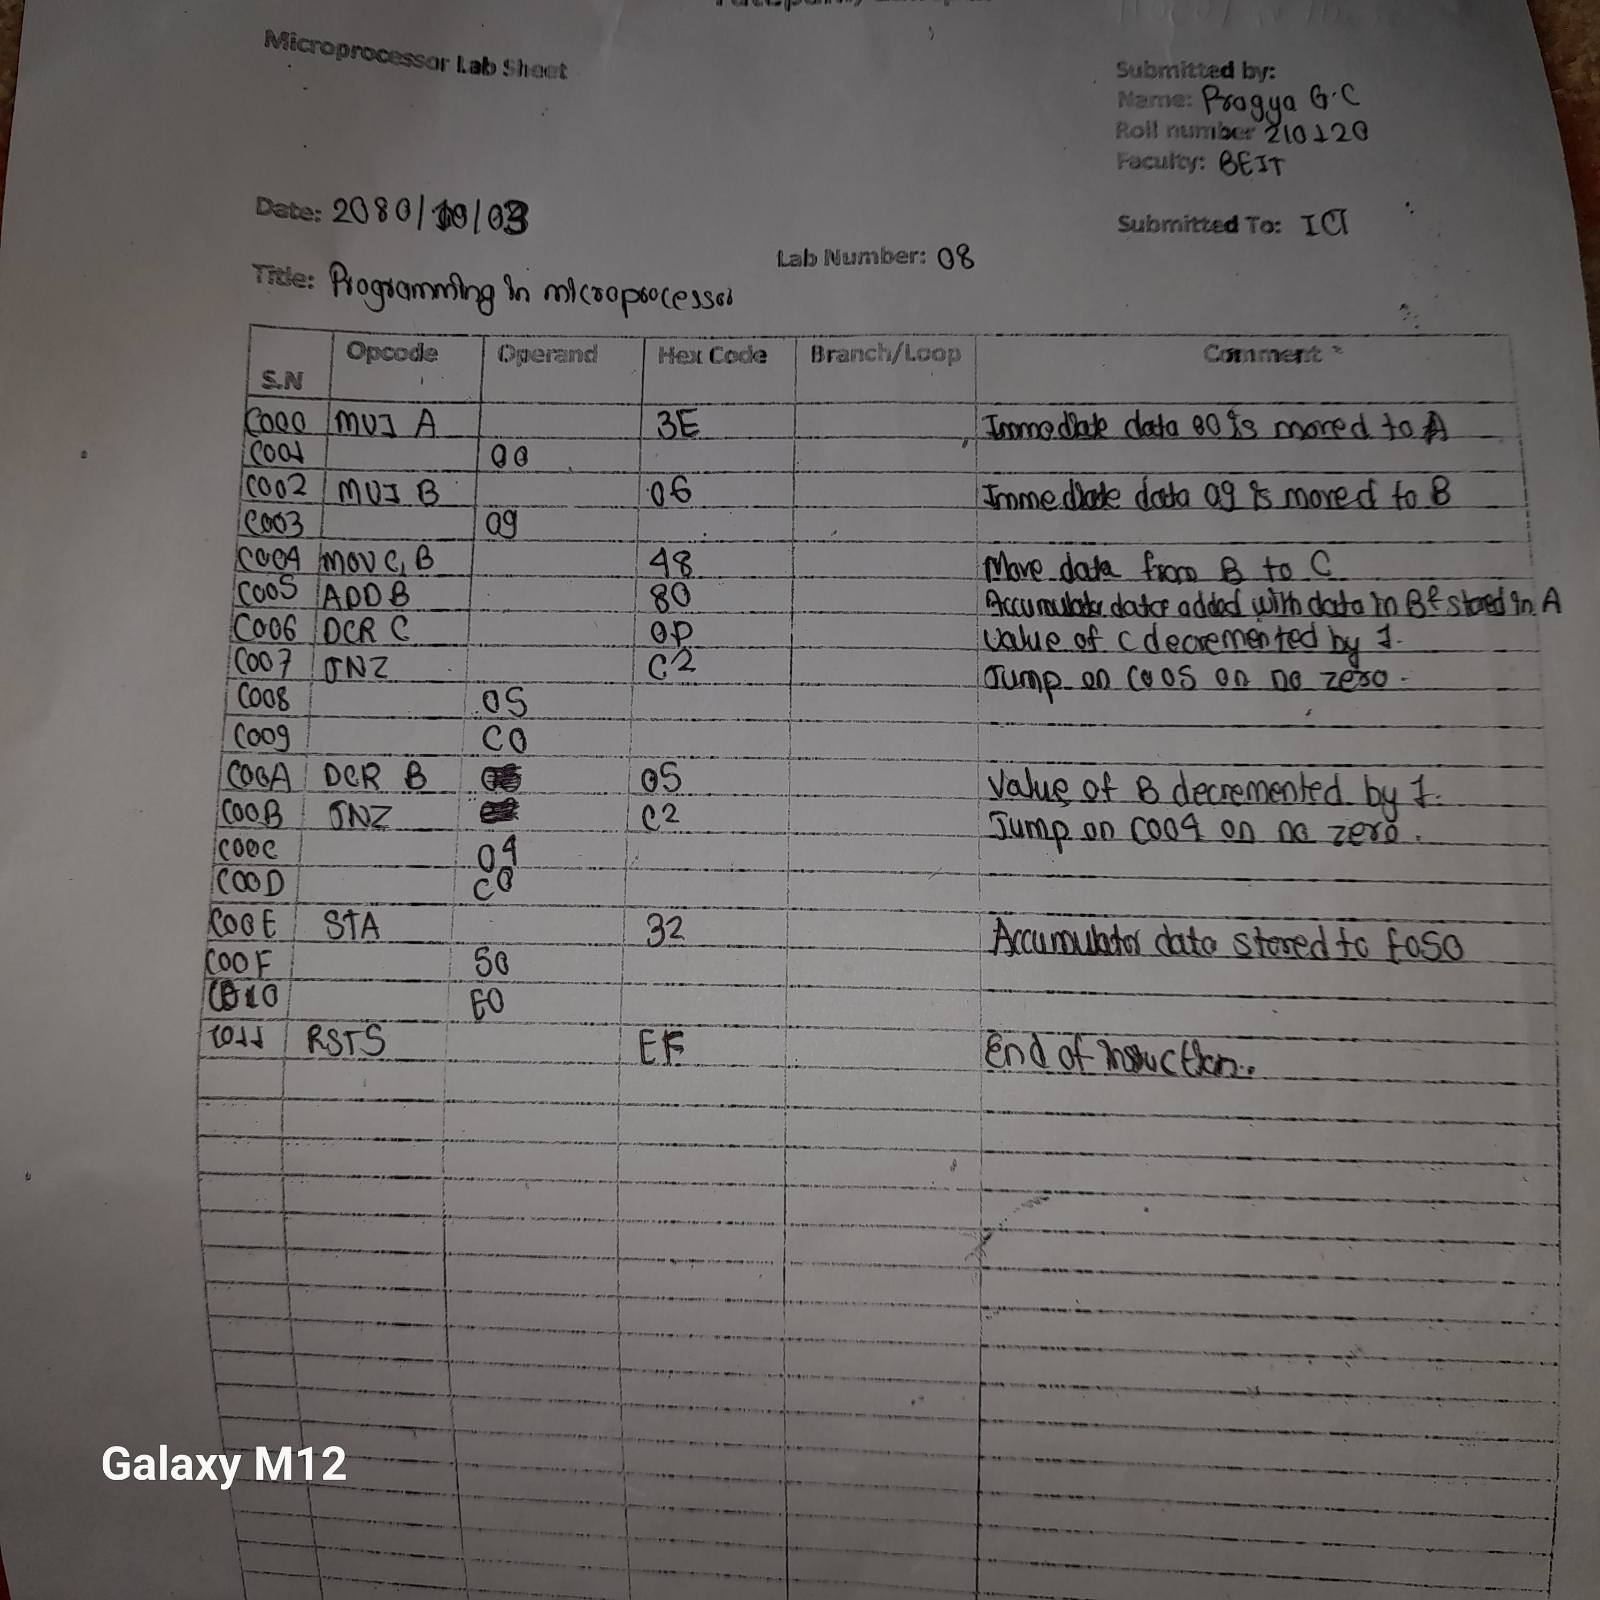 Microprocessor Lab Sheet
Submitted by:
Name: Pragya G.C
Roll number 210120
Faculty: BEIT
Date: 2080/10/03
Submitted To: ICT
Lab Number: 08
Title: Programming in microprocessor
S.N Opcode Operand Hex Code Branch/Loop Comment
C000 MVI A 3E Immediate data 00 is moved to A
C001 00
C002 MVI B 06 Immediate data 09 is moved to B
C003 09
C004 MOV C, B 48 Move data from B to C
C005 ADD B 80 Accumulator data added with data in B & stored in A
C006 DCR C 0D Value of C decremented by 1.
C007 JNZ C2 Jump on C005 on no zero.
C008 05
C009 C0
C00A DCR B 05 Value of B decremented by 1.
C00B JNZ C2 Jump on C004 on no zero.
C00C 04
C00D C0
C00E STA 32 Accumulator data stored to E050
C00F 50
C010 E0
C011 RST5 EF End of
Galaxy M12